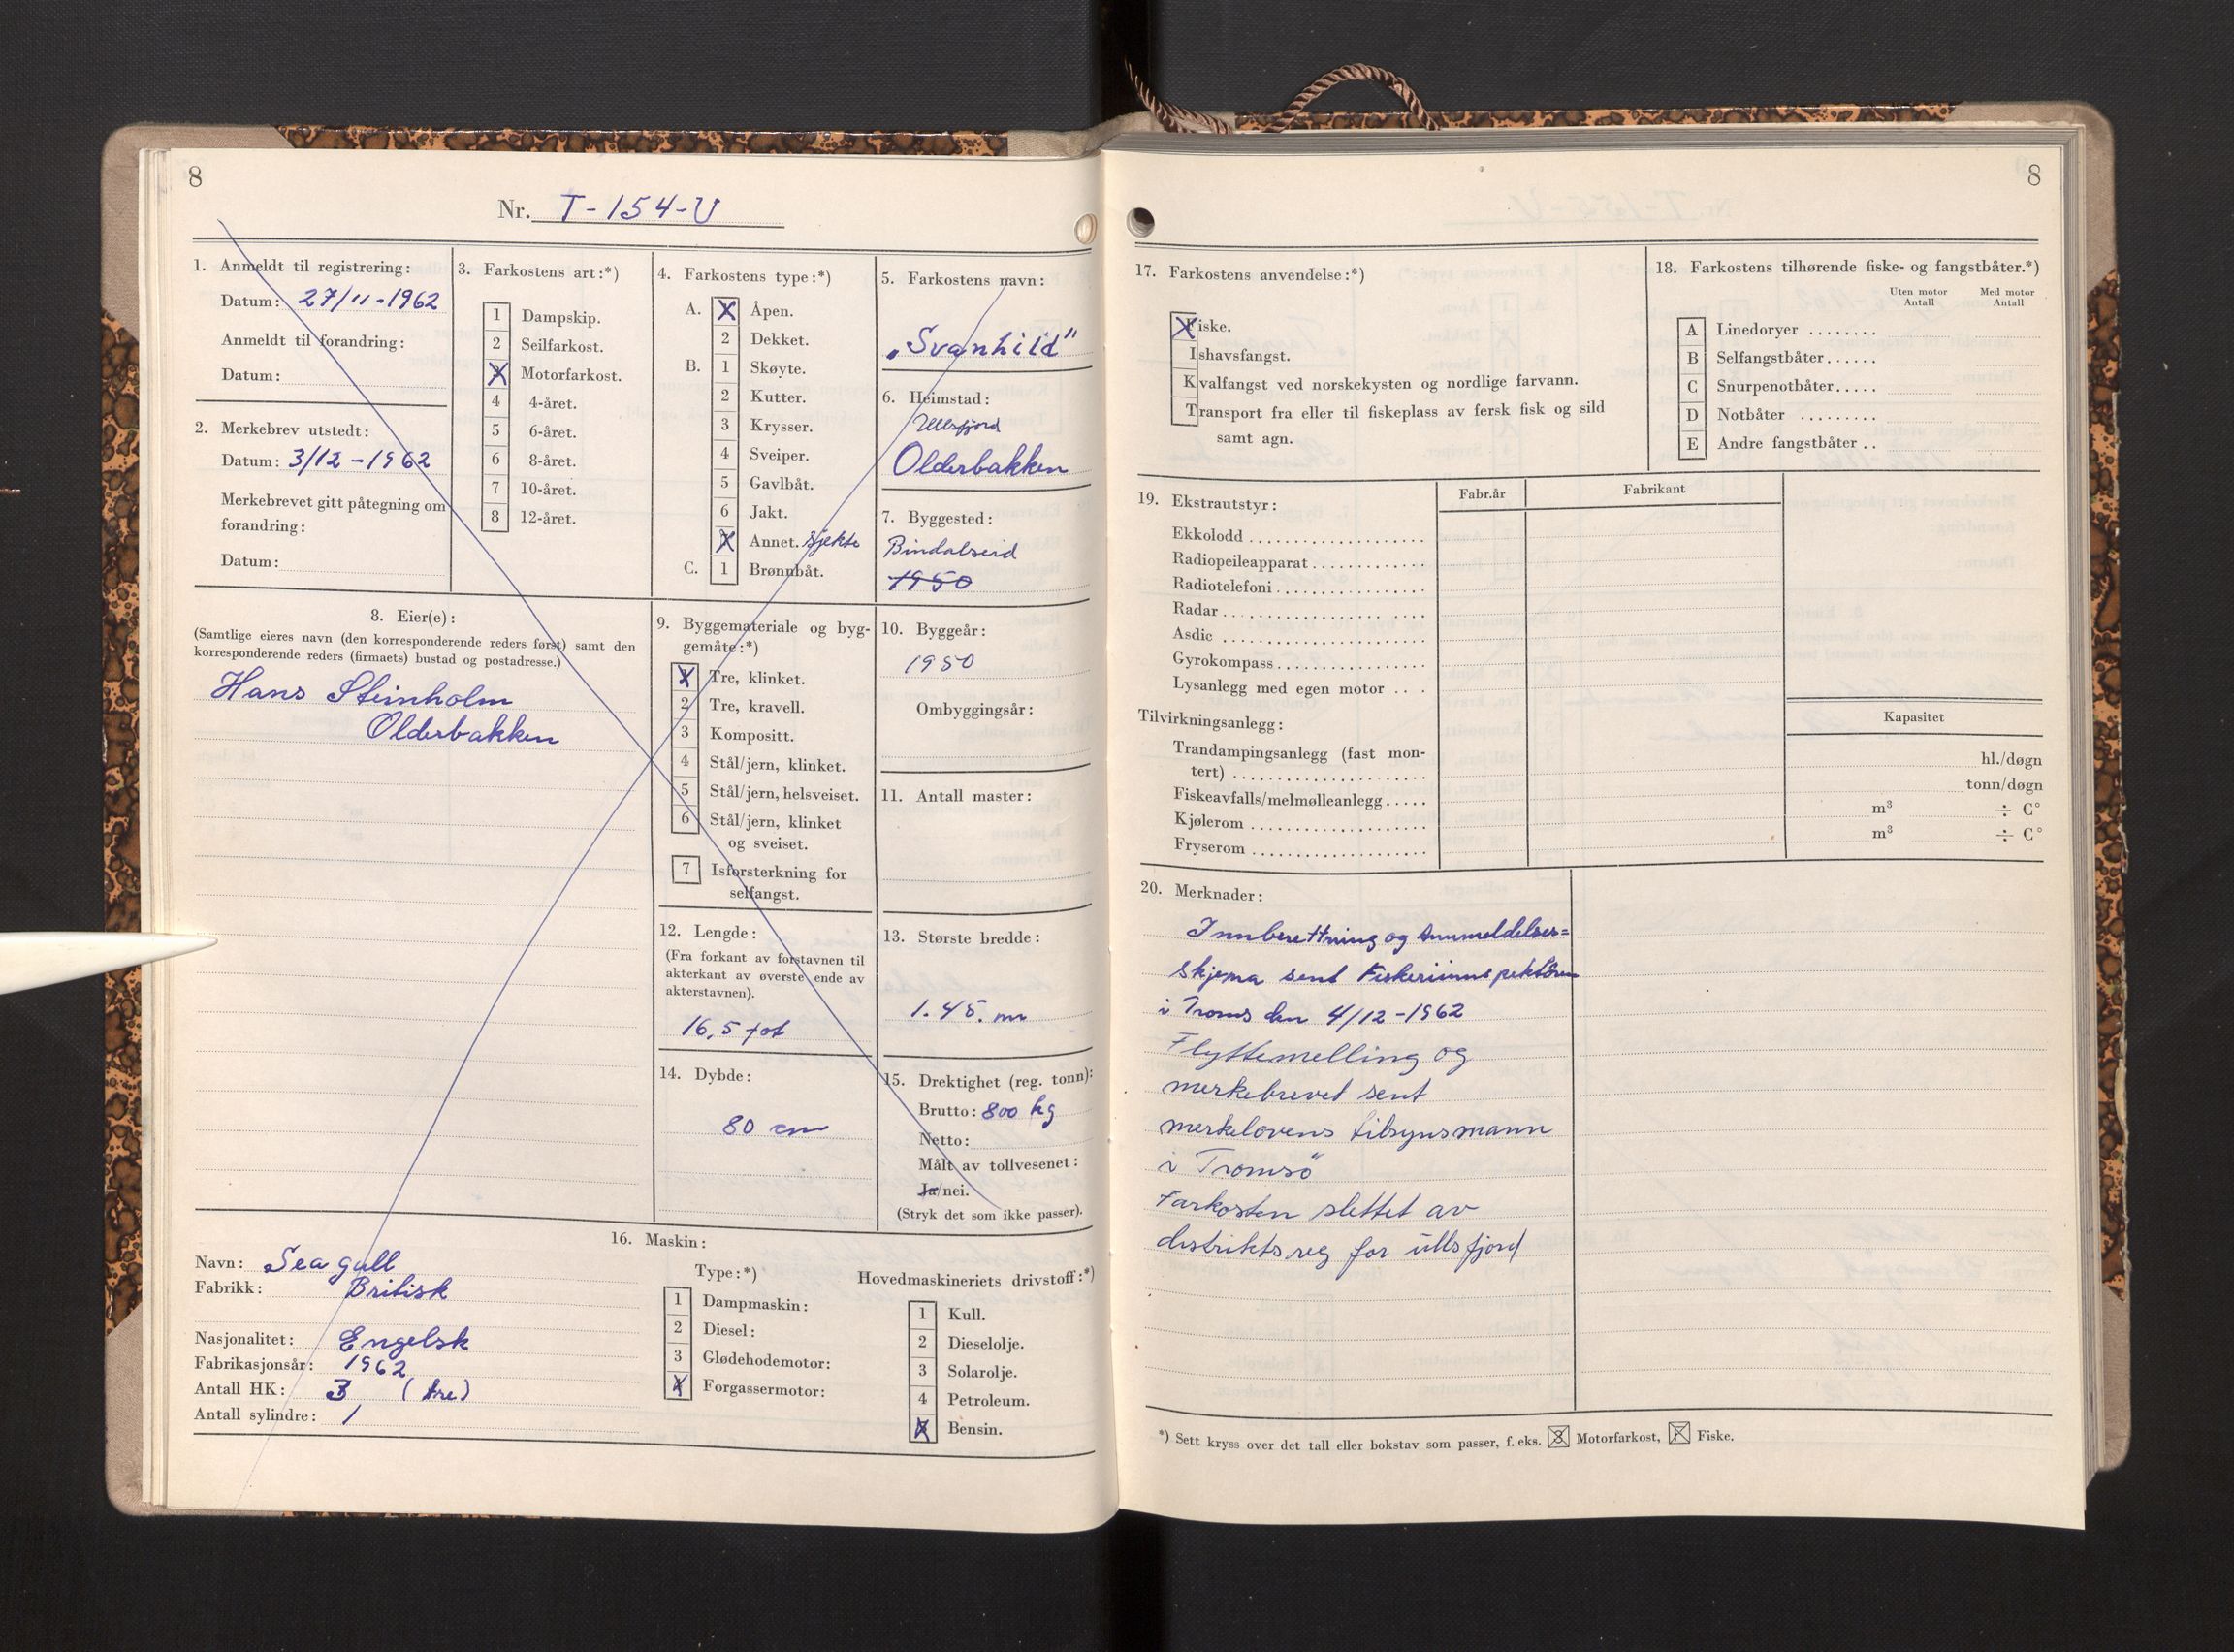 8
Nr. T-154-U
1. Anmeldt til registrering:
Datum: 27/11-1962
Anmeldt til forandring:
Datum:
2. Merkebrev utstedt:
Datum: 3/12-1962
Merkebrevet gitt påtegning om
forandring:
Datum:
3. Farkostens art:*)
1 Dampskip.
2 Seilfarkost.
X Motorfarkost.
4 4-året.
5 6-året.
6 8-året.
7 10-året.
8 12-året.
4. Farkostens type:*)
A. X Åpen.
2 Dekket.
B. 1 Skøyte.
2 Kutter.
3 Krysser.
4 Sveiper.
5 Gavlbåt.
6 Jakt.
X Annet. Sjekte
C. 1 Brønnbåt.
5. Farkostens navn:
„Svanhild"
6. Heimstad:
Ullsfjord
Olderbakken
7. Byggested:
Bindalseid
1950
8. Eier(e):
(Samtlige eieres navn (den korresponderende reders først) samt den
korresponderende reders (firmaets) bustad og postadresse.)
Hans Steinholm
Olderbakken
9. Byggemateriale og byg-
gemåte:*)
X Tre, klinket.
2 Tre, kravell.
3 Kompositt.
4 Stål/jern, klinket.
5 Stål/jern, helsveiset.
6 Stål/jern, klinket
og sveiset.
7 Isforsterkning for
selfangst.
10. Byggeår:
1950
Ombyggingsår:
11. Antall master:
12. Lengde:
(Fra forkant av forstavnen til
akterkant av øverste ende av
akterstavnen).
16,5 fot
13. Største bredde:
1.45. m
14. Dybde:
80 cm
15. Drektighet (reg. tonn):
Brutto: 800 kg
Netto:
Målt av tollvesenet:
Ja/nei.
(Stryk det som ikke passer).
16. Maskin:
Navn: Seagull
Fabrikk: Britisk
Nasjonalitet: Engelsk
Fabrikasjonsår: 1962
Antall HK: 3 (tre)
Antall sylindre: 1
Type:*)
1 Dampmaskin:
2 Diesel:
3 Glødehodemotor:
X Forgassermotor:
Hovedmaskineriets drivstoff:*)
1 Kull.
2 Dieselolje.
3 Solarolje.
4 Petroleum.
X Bensin.
8
17. Farkostens anvendelse:*)
Fiske.
Ishavsfangst.
Kvalfangst ved norskekysten og nordlige farvann.
Transport fra eller til fiskeplass av fersk fisk og sild
samt agn.
18. Farkostens tilhørende fiske- og fangstbåter.*)
Uten motor Med motor
Antall Antall
A Linedoryer ........
B Selfangstbåter......
C Snurpenotbåter.....
D Notbåter .........
E Andre fangstbåter ..
19. Ekstrautstyr:
Fabr.år Fabrikant
Ekkolodd
Radiopeileapparat
Radiotelefoni
Radar
Asdic
Gyrokompass
Lysanlegg med egen motor ...
Tilvirkningsanlegg:
Kapasitet
Trandampingsanlegg (fast mon-
tert) hl./døgn
Fiskeavfalls/melmølleanlegg..... tonn/døgn
Kjølerom m³ ÷ C°
Fryserom m³ ÷ C°
20. Merknader:
Innberettning og Anmeldelses=
skjema sent Fiskeriinnspektören
i Troms den 4/12-1962
Flyttemelling og
merkebrevet sent
merkelovens tilsynsmann
i Tromsö
Farkosten slettet av
distriktsreg for ullsfjord
*) Sett kryss over det tall eller bokstav som passer, f. eks. 3 Motorfarkost, F Fiske.